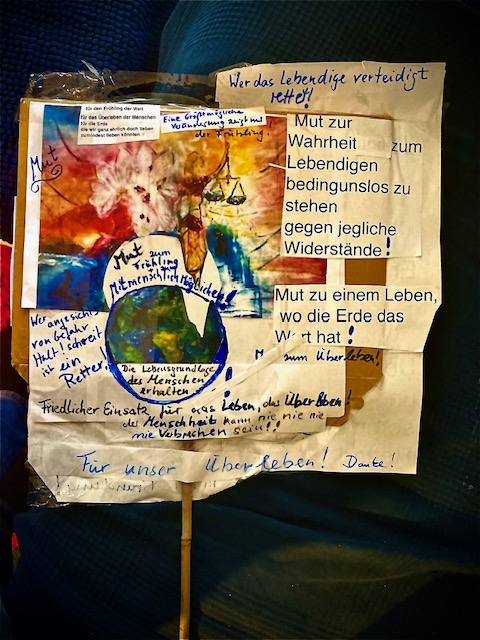 Wer das Lebendige verteidigt
rettet!
für den Frühling der Welt
für das Überleben der Menschen
für die Erde
die wir ganz ehrlich doch lieben
zumindest lieben könnten !
Eine größtmögliche
Veränderung zeigt uns
der Frühling.
Mut
Mut zur
Wahrheit zum
Lebendigen
bedingunslos zu
stehen
gegen jegliche
Widerstände!
Mut
zum
Frühling
zum
Mitmenschlich Möglichen!
Mut zu einem Leben,
wo die Erde das
Wort hat !
zum Überleben!
Wer angesichts
von Gefahr
Halt! schreit
ist ein
Retter!
Die Lebensgrundlage
des Menschen
erhalten !
Friedlicher Einsatz für das Leben, das Überleben!
der Menschheit kann nie nie nie
nie Verbrechen sein!!
Für unser Überleben! Danke!